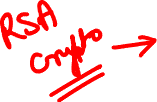 RSA
Crypto